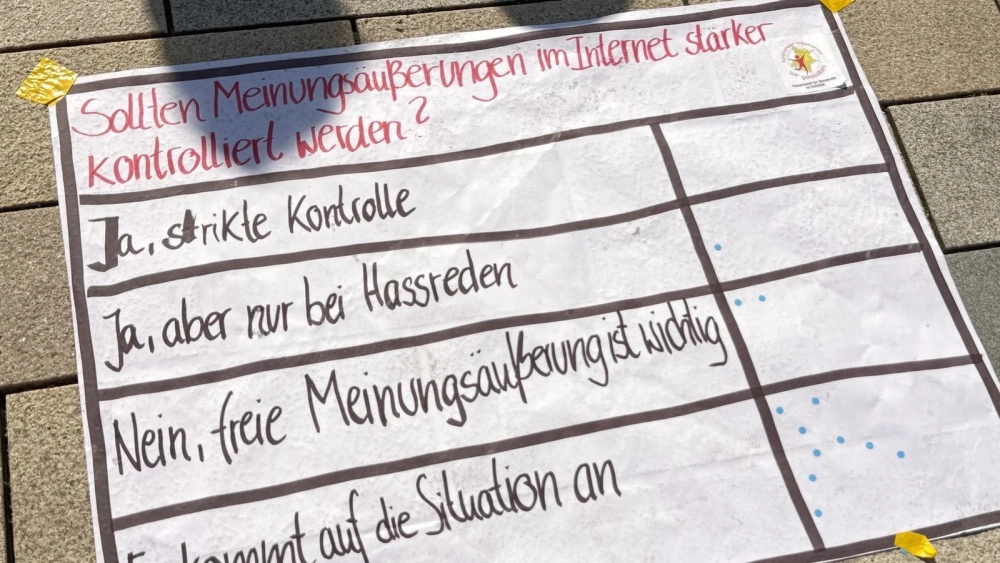 Sollten Meinungsäußerungen im Internet stärker
kontrolliert werden?
Ja, strikte Kontrolle
Ja, aber nur bei Hassreden
Nein, freie Meinungsäußerung ist wichtig
kommt auf die Situation an